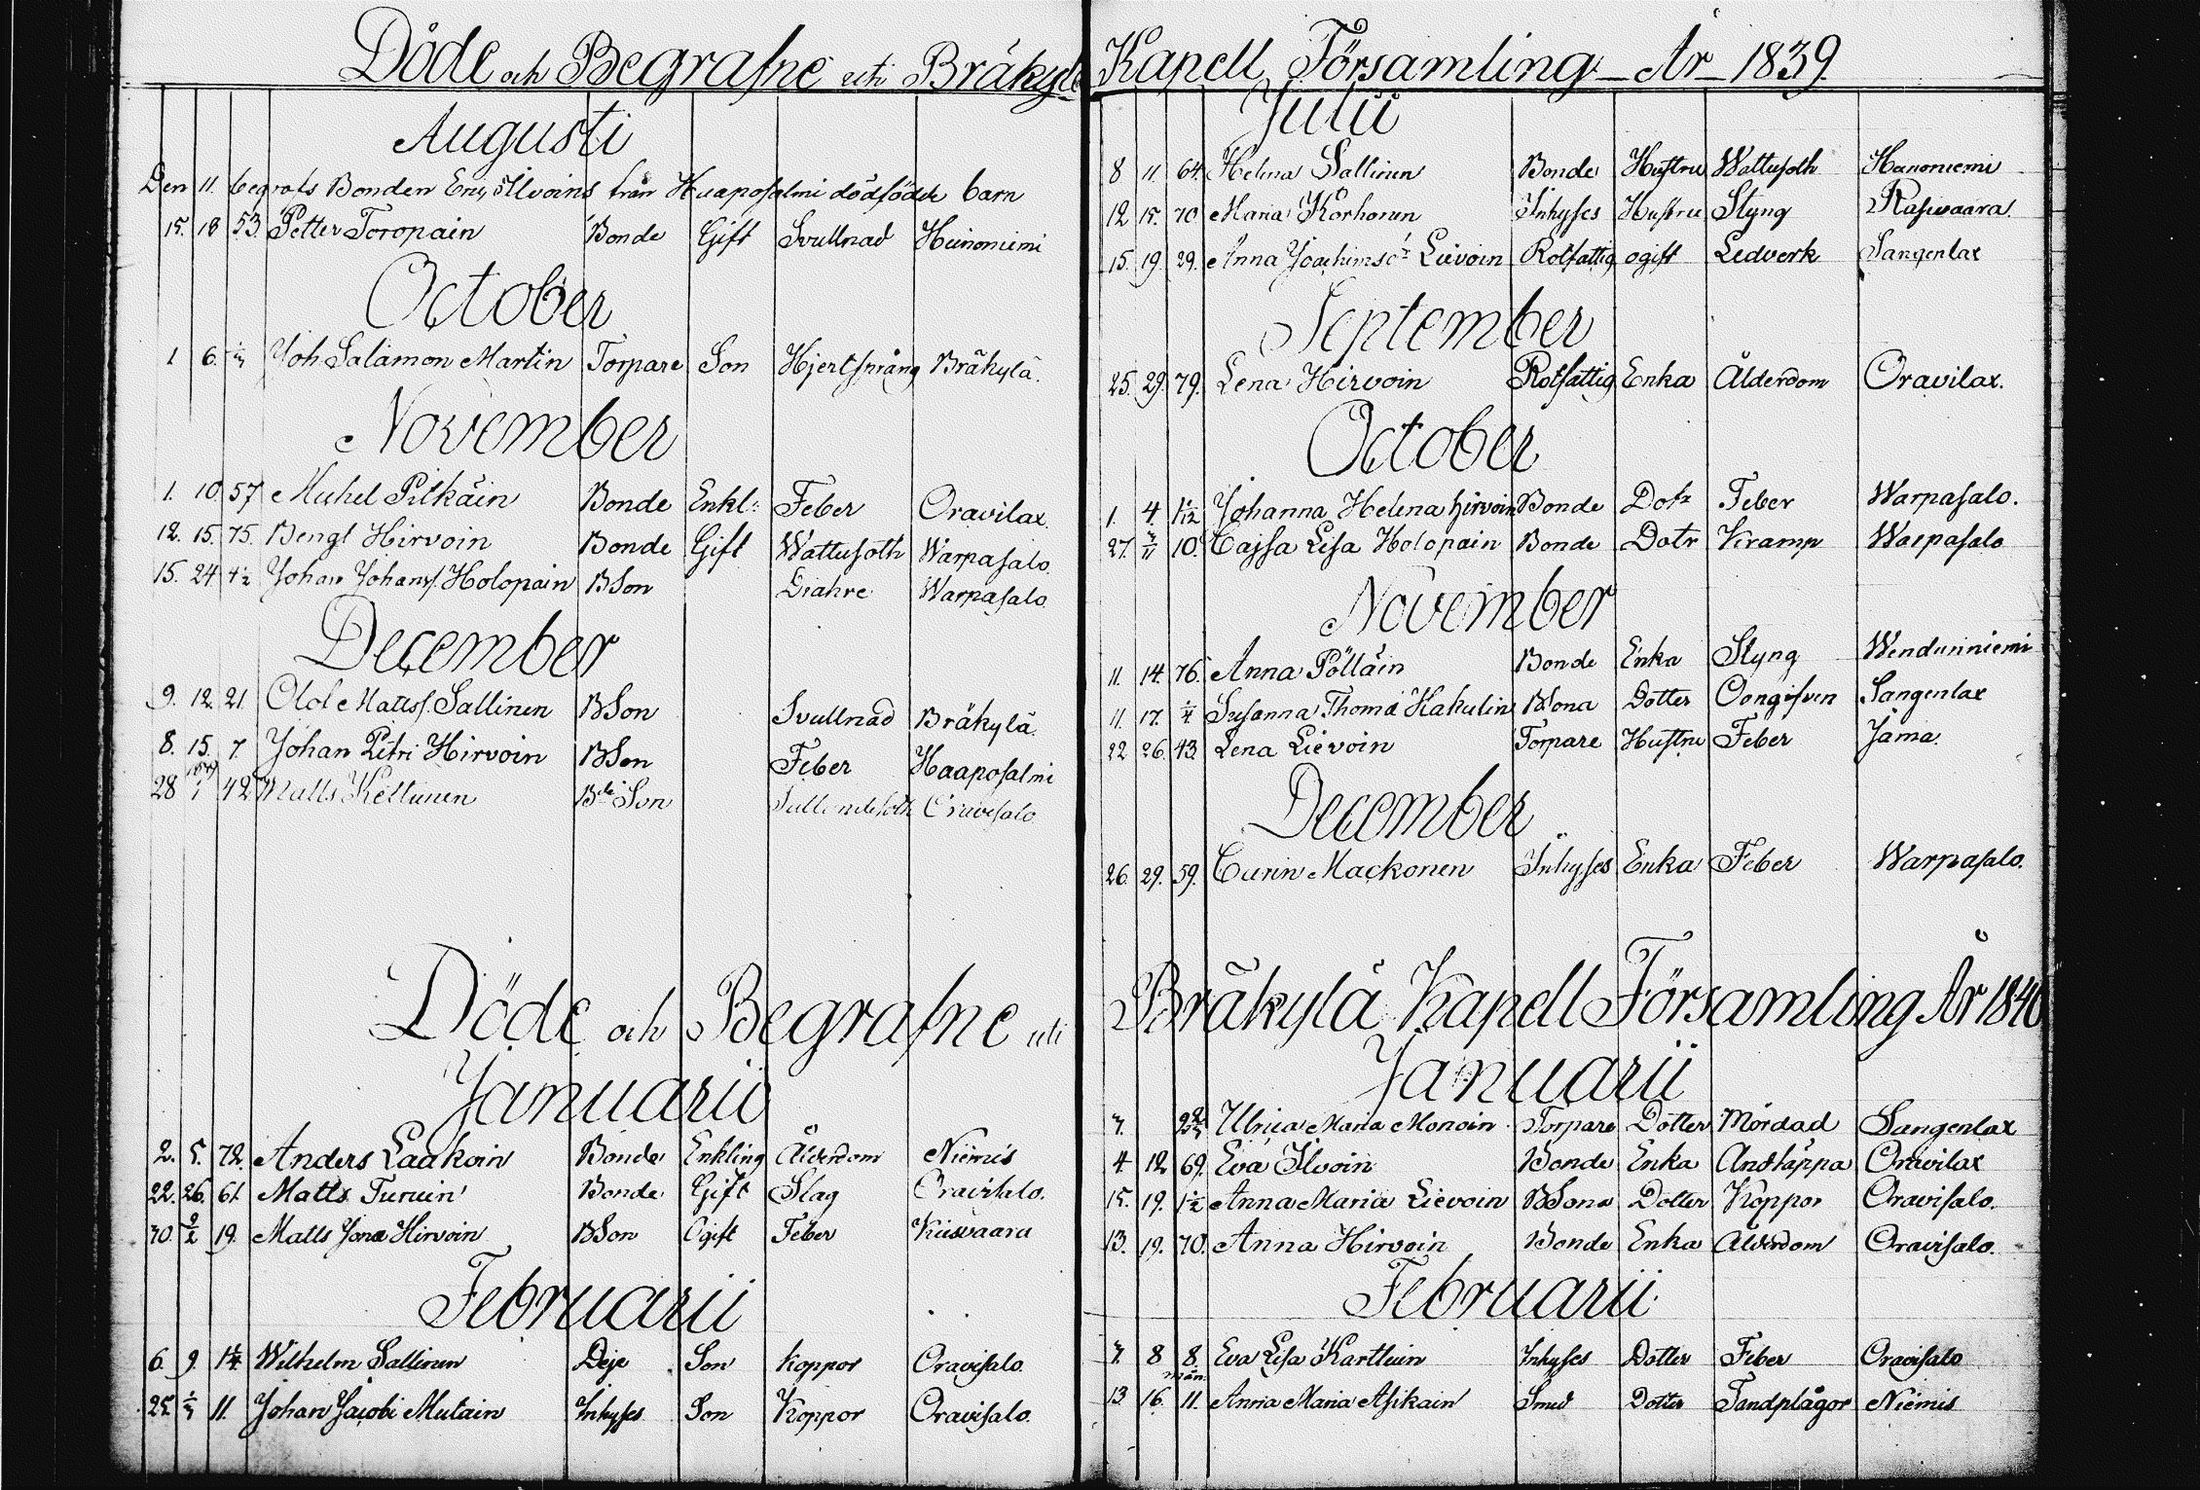 Döde och Begrafne uti Bräkylä Kapell Församling År 1839.
Augusti
Den 11. begrofs Bonden Ilvoins från Huaposalmi dödfödde barn
15. 18 53. Petter Toropain Bonde Gift Svullnad Heinoniemi
October
1 6. Joh Salamon Martin Torpare Son Hjertsprång Bräkylä.
November
1. 10 57 Michel Pitkäin Bonde Enkl: Feber Oravilax.
12. 15. 75. Bengt Hirvoin Bonde Gift Wattusoth Warpasalo.
15. 24 4½ Johan Johans. Holopain BSon Warpasalo.
December
9. 12 21 Olof Mattss. Sallinen BSon Svullnad Bräkylä.
8. 15. 7 Johan Petri Hirvoin BSon Feber Haaposalmi
28 1 42 Matts Keltunen Son Oravisalo
Döde och Begrafne uti
Januarii
2. 5. 72. Anders Laakoin Bonde Enkling Ålderdom Niemis
22. 26. 61 Matts Turuin Bonde Gift Slag Oravisalo.
30. 2/2 19. Matts Jona Hirvoin BSon Ogift Feber Kiisvaara
Februarii
6. 9. 1¼ Wilhelm Sallinen Deje Son Koppor Oravisalo
25. 1/3 11. Johan Jacobi Mutain Inhyses Son Koppor Oravisalo.
Julii
8 11 64. Helena Sallinen Bonde Hustru Wattusoth Hunoniemi
12 15. 70 Maria Korhonen Inhyses Hustru Styng Rasivaara.
15. 19. 29. Anna Joachimsdr Lievoin Rotfattig ogift Ledverk Sangenlax
September
25. 29. 79. Lena Hirvoin Rotfattig Enka Ålderdom Oravilax.
October
1. 4. 1 1/12 Johanna Helena Hirvoin Bonde Dotr Feber Warpasalo.
27. 3/11 10. Cajsa Lisa Holopain Bonde Dotr Kramp Warpasalo
November
11. 14. 76. Anna Pölläin Bonde Enka Styng Wendunniemi
11. 17. ¼ Susanna Thoma Hakulin BSona Dotter Oongifven Sangenlax
22 26. 43 Lena Lievoin Torpare Hustru Feber Jama.
December
26. 29. 59. Carin Mackonen Inhyses Enka Feber Warpasalo.
Bräkylä Kapell Församling År 1840
Januarii
3. Ulrica Maria Monoin Torpare Dotter Mördad Sangenlax
4 12 69. Eva Ilvoin Bonde Enka Andtäppa Oravilax
15. 19. 1½ Anna Maria Lievoin BSona Dotter Koppor Oravisalo.
13. 19. 70. Anna Hirvoin Bonde Enka Ålderdom Oravisalo.
Februarii
3. 8 8. mån. Eva Lisa Karttuin Inhyses Dotter Feber Oravisalo
13 16. 11. Anna Maria Asikain Smed Dotter Tandplågor Niemis